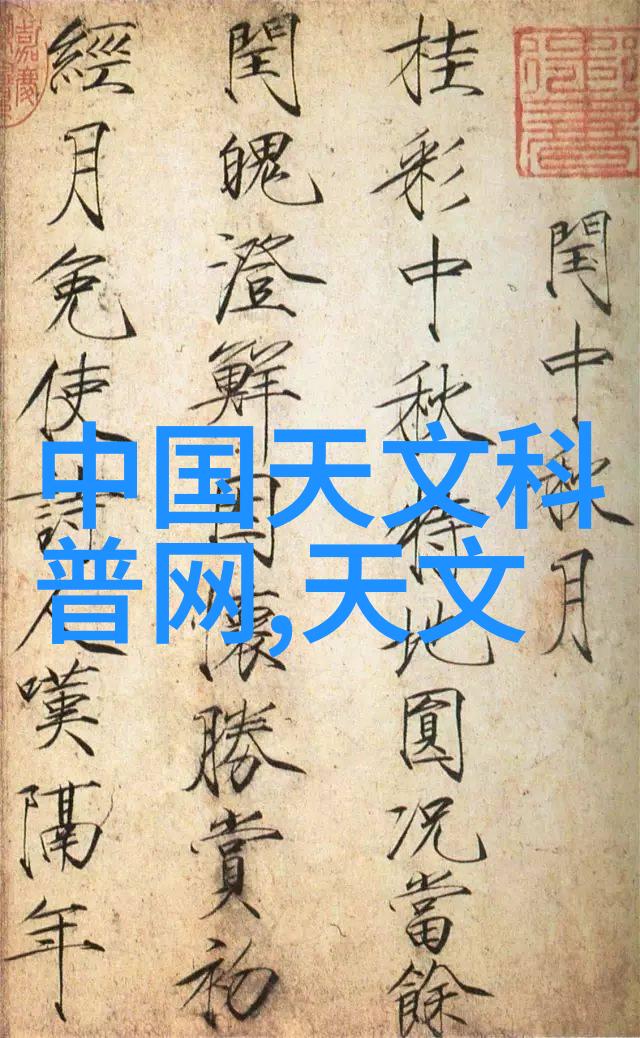 閏中秋月
桂彩中秋特地圓況當餘
閏魄澄鮮因懷勝賞初
經月免使詩人嘆隔年
中国天文科
普网,天文